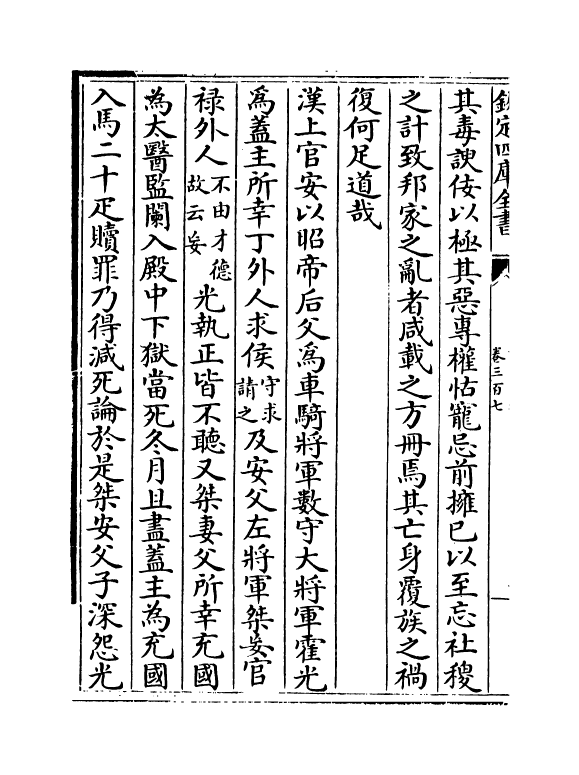 欽定四庫全書
卷三百七
其毒諛佞以極其惡專權怙寵忌前擁已以至忘社稷
之計致邦家之亂者咸載之方冊焉其亡身覆族之禍
復何足道哉
漢上官安以昭帝后父為車騎將軍數守大將軍霍光
為蓋主所幸丁外人求侯守求請之及安父左將軍桀妄官
祿外人不由才德故云妄光執正皆不聽又桀妻父所幸充國
為太醫監闌入殿中下獄當死冬月且盡蓋主為充國
入馬二十疋贖罪乃得減死論於是桀安父子深怨光